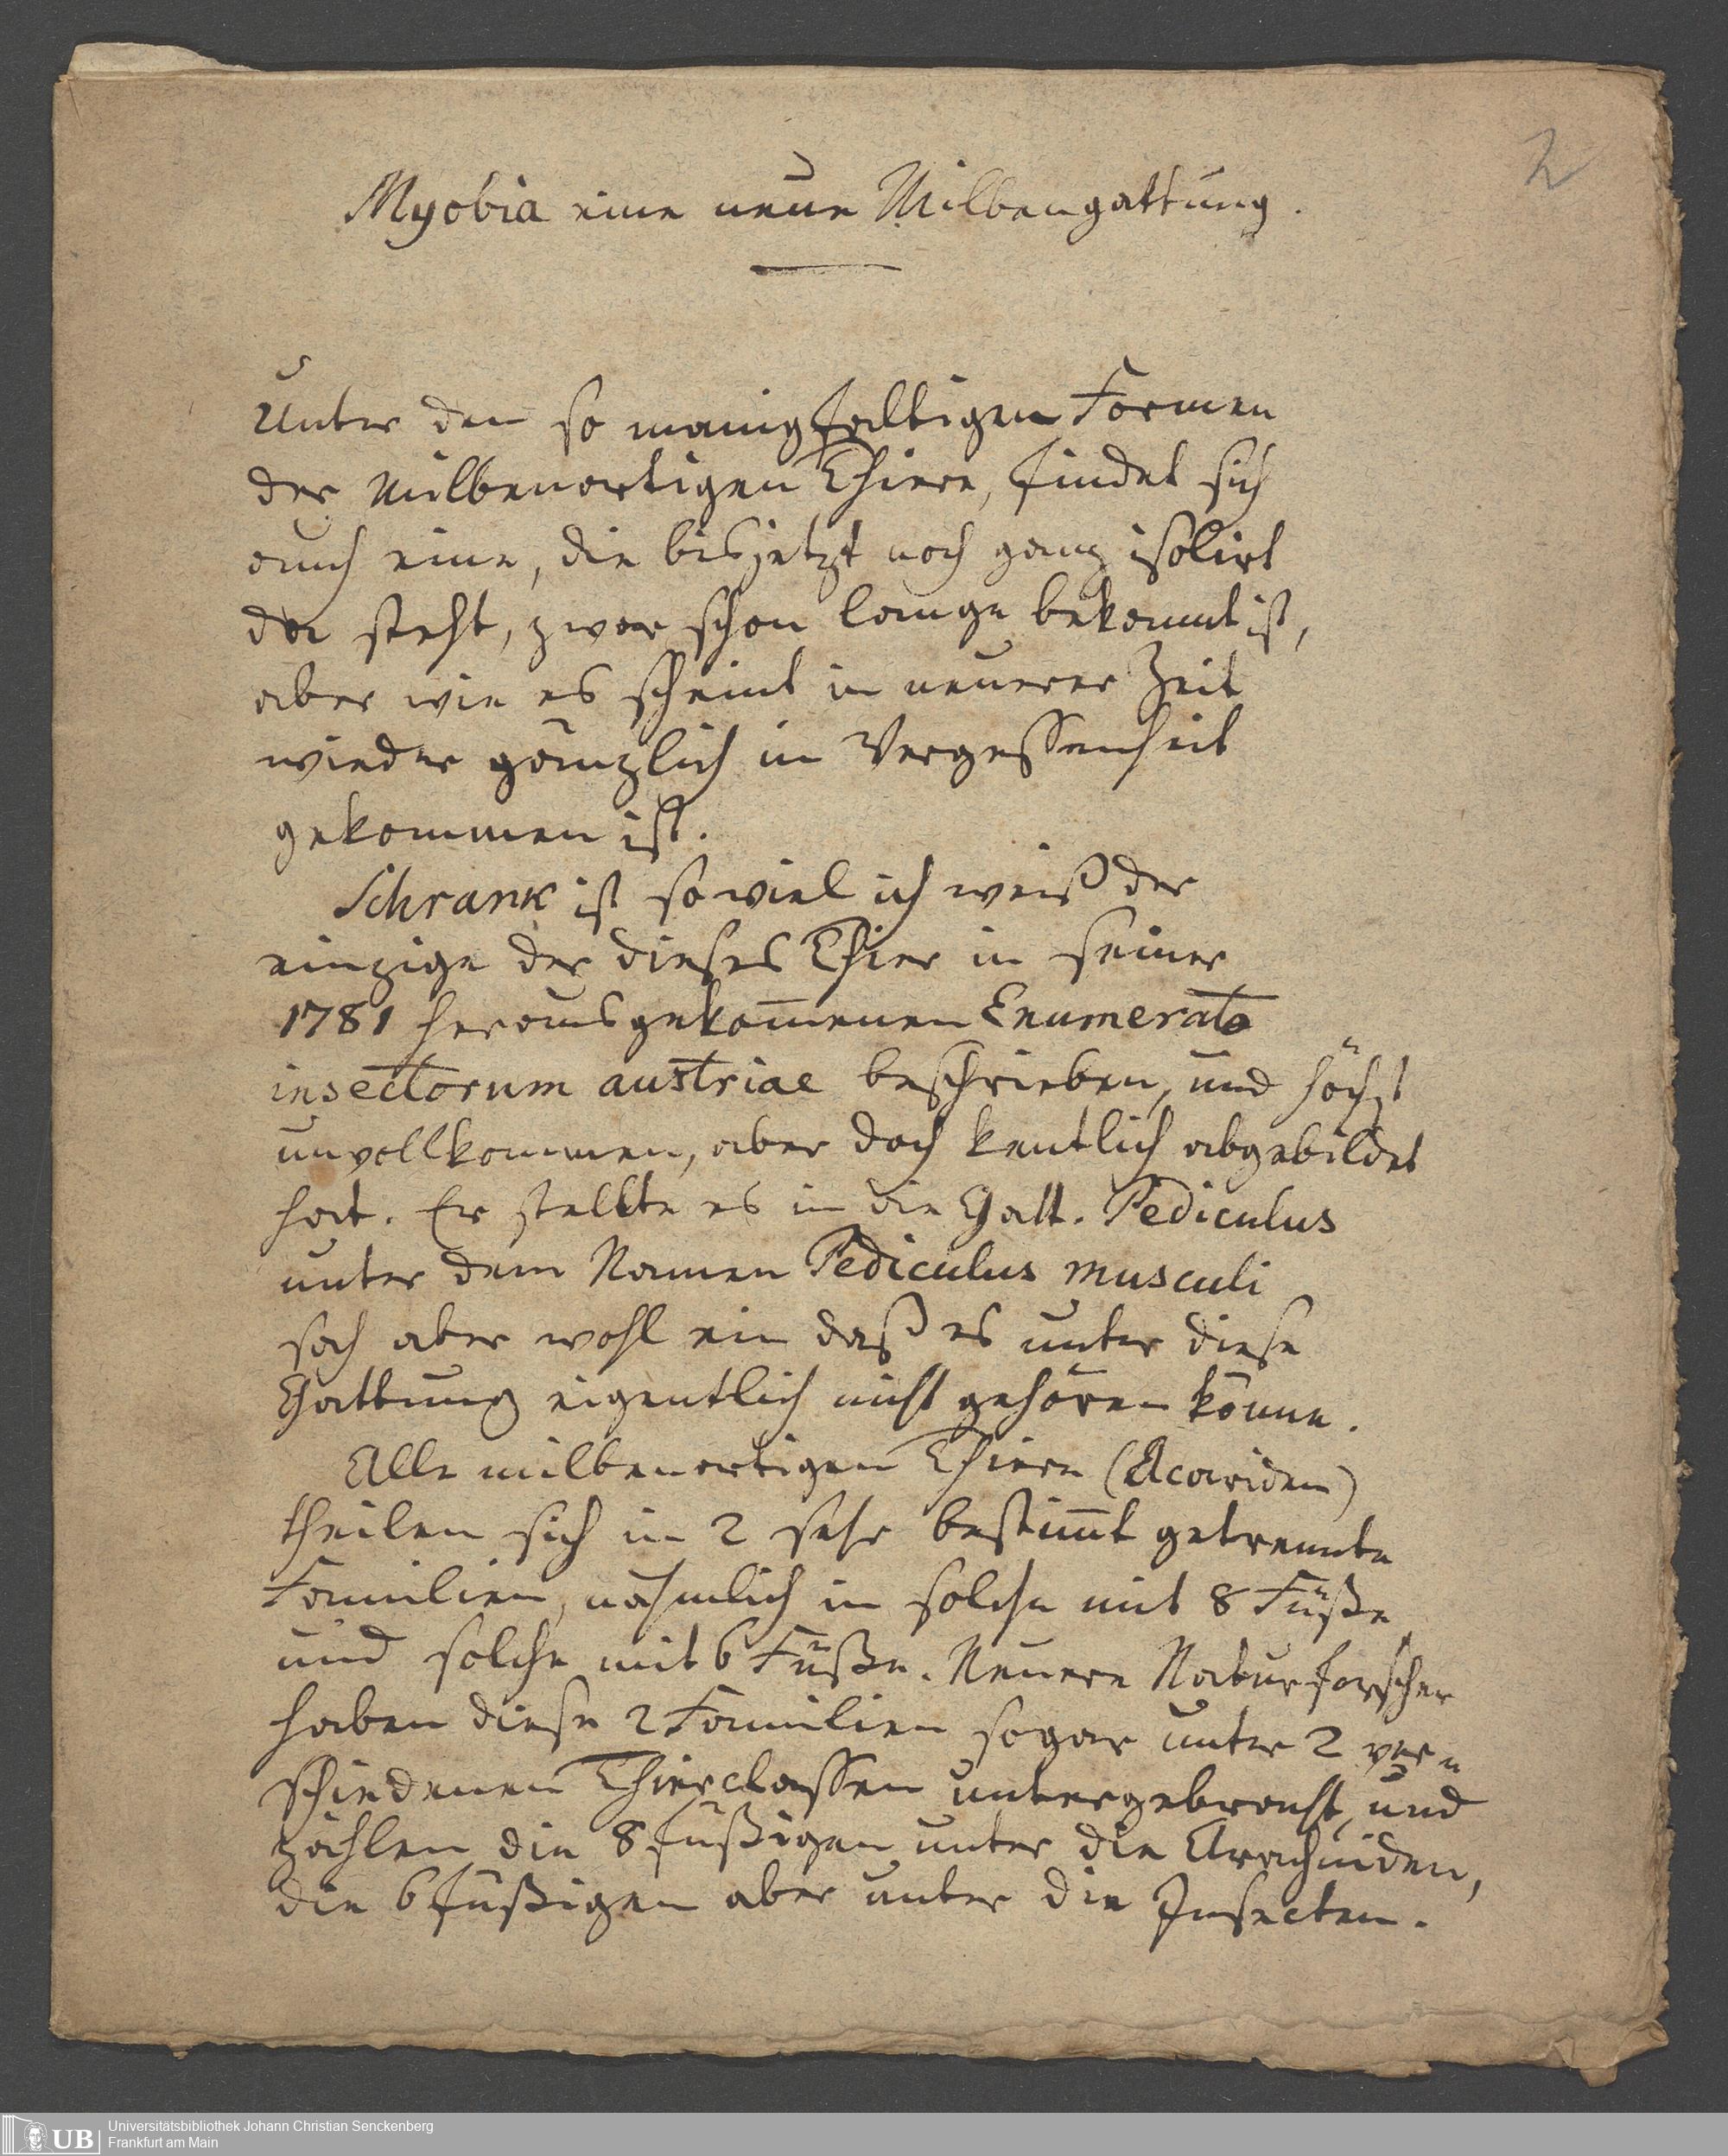 2
Myobia eine neue Milbengattung.
Unter den so manigfaltigen Formen
der Milbenartigen Thiere, findet sich
auch eine, die bisjetzt noch ganz isolirt
da steht, zwar schon lange bekannt ist,
aber wie es scheint in neuerer Zeit
wieder gänzlich in Vergessenheit
gekommen ist.
Schrank ist so viel ich weiß der
einzige der dieses Thier in seiner
1781 herausgekom̄enen Enumerato
insectorum austriae beschrieben, und höchst
unvollkommen, aber doch kentlich abgebildet
hat. Er stellte es in die Gatt. Pediculus
unter dem Namen Pediculus musculi
sah aber wohl ein daß es unter diese
Gattung eigentlich nicht gehören könne.
Alle milbenartigen Thiere (Acariden)
theilen sich in 2 sehr bestim̄t getrennte
Familien, nähmlich in solche mit 8 Füße
und solche mit 6 Füße. Neuere Naturforscher
haben diese 2 Familien sogar unter 2 ver=
schiedenen Thierclassen untergebracht, und
zählen die 8füßigen unter die Arachniden,
die 6füßigen aber unter die Insecten.
UB
Universitätsbibliothek Johann Christian Senckenberg
Frankfurt am Main